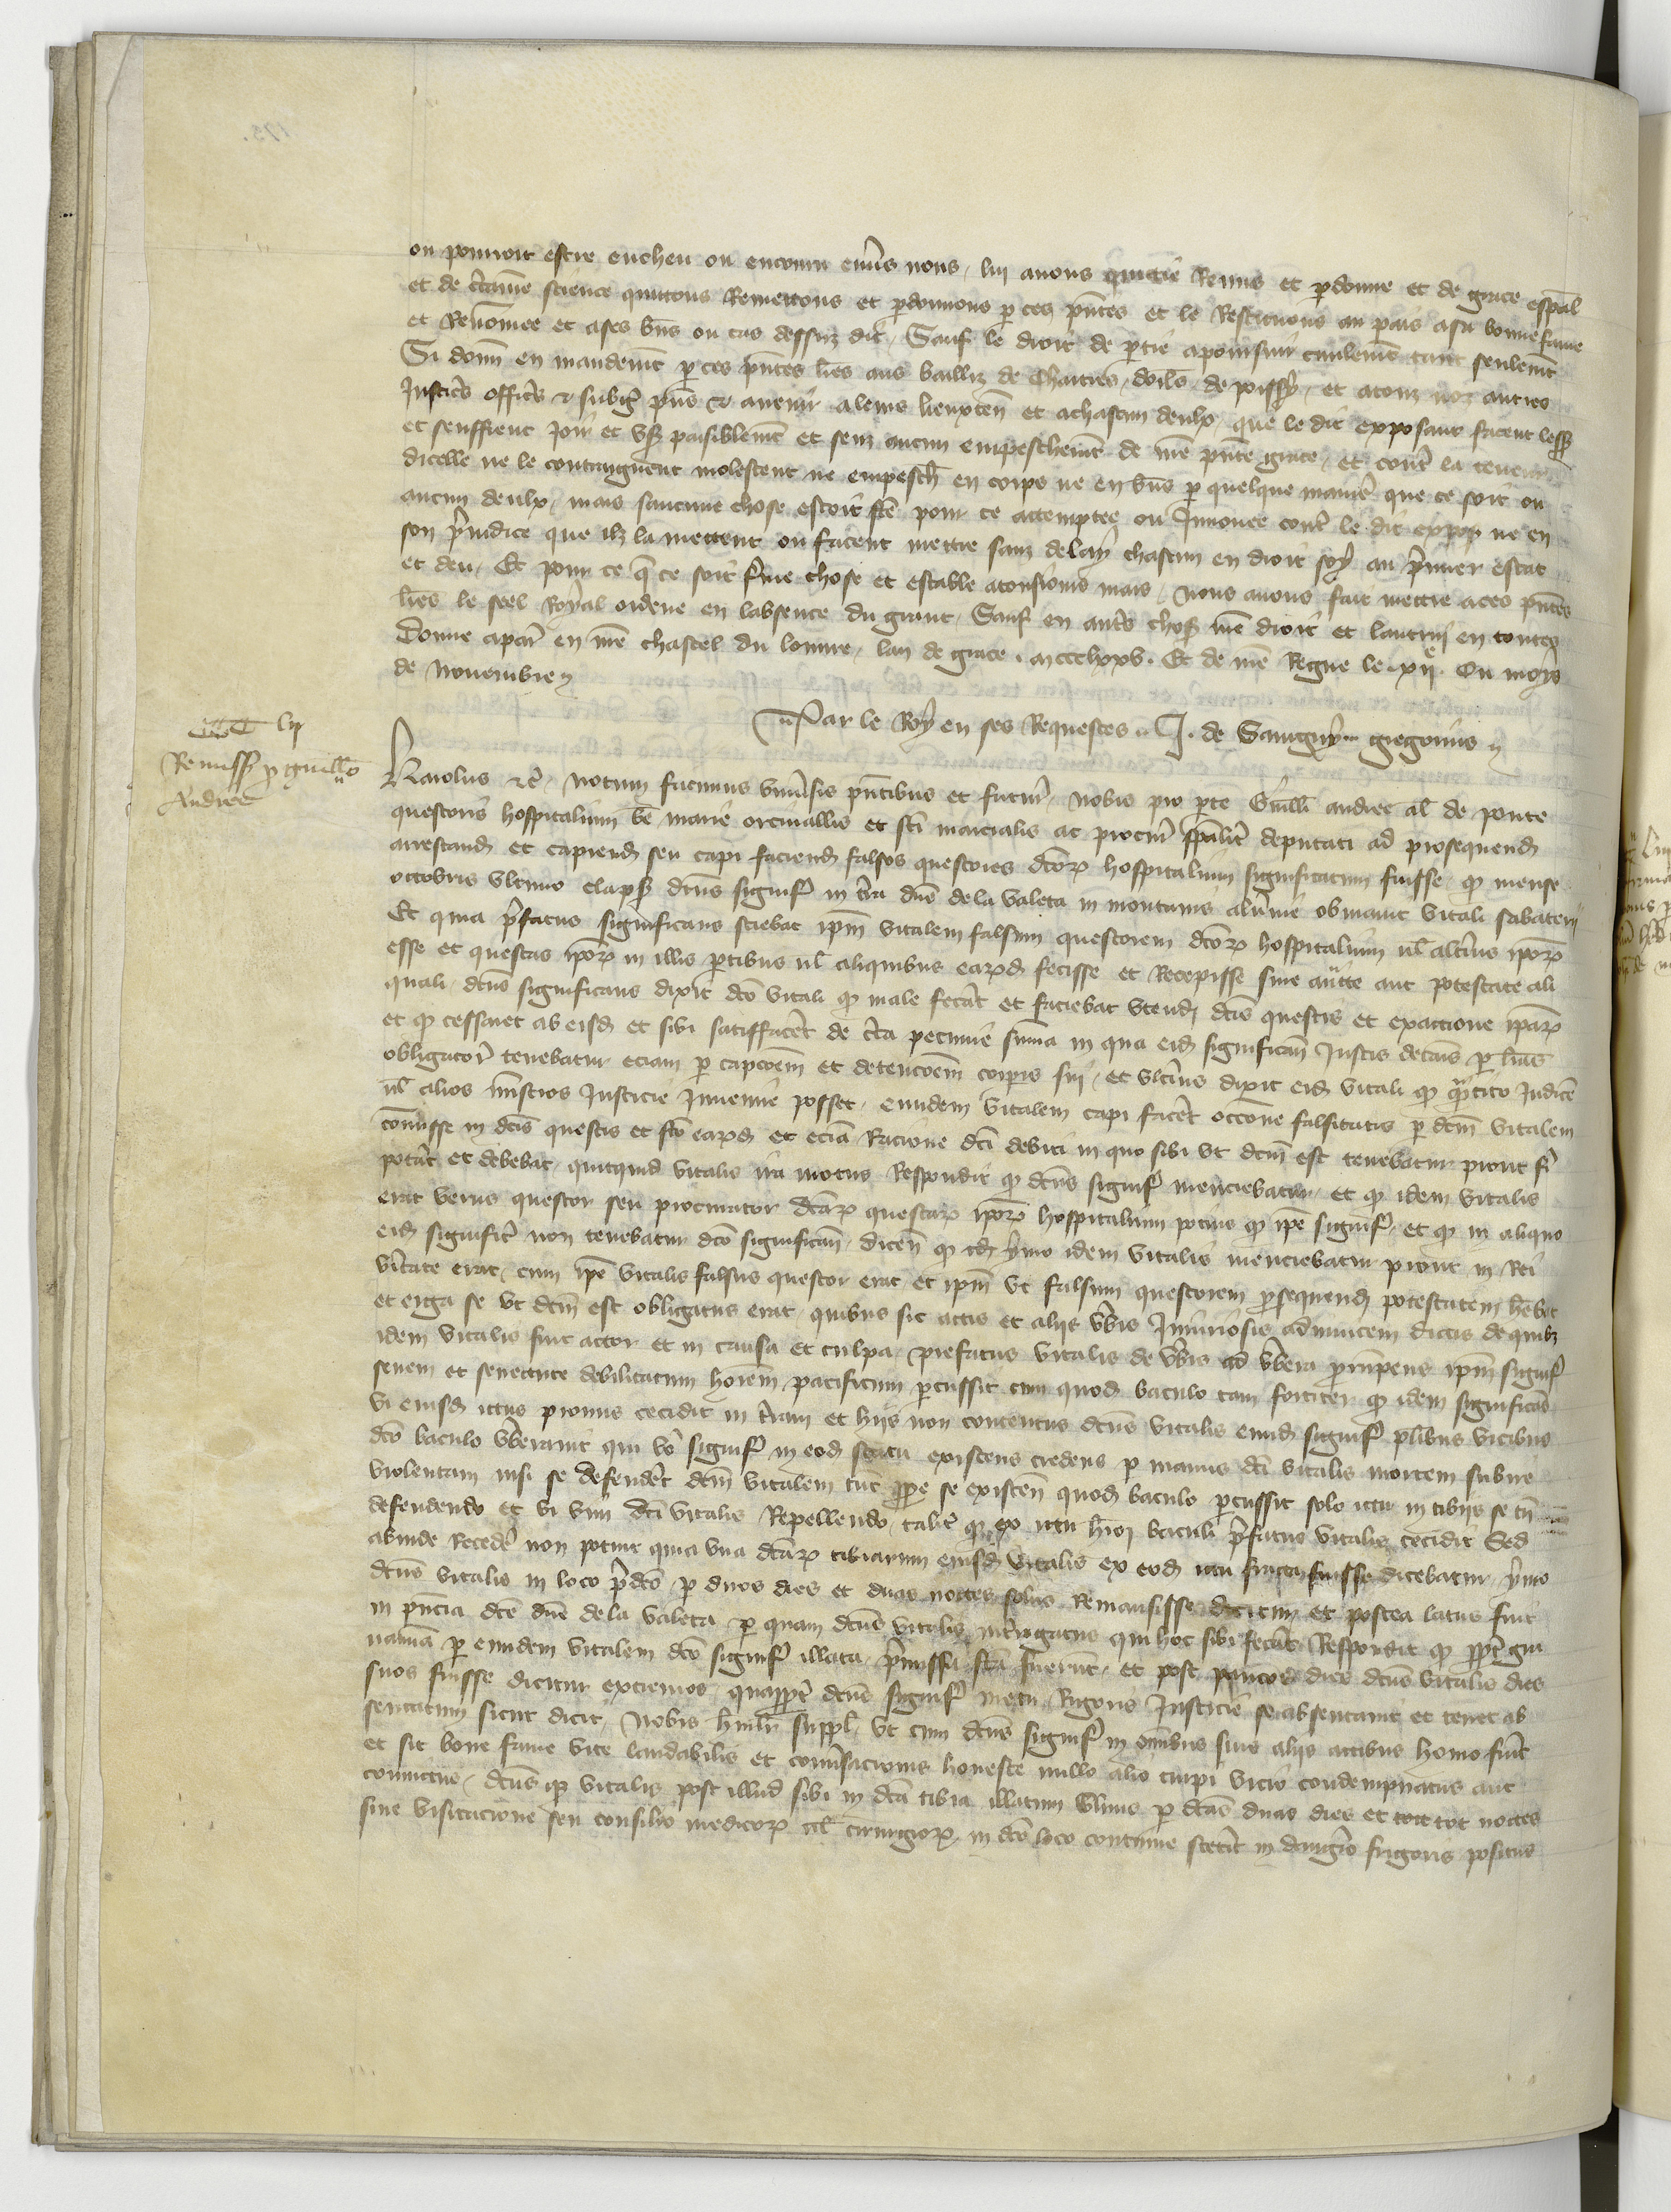 ou pourroit estre encheu ou encouru enu's nous, lui auons quictie Remis et p donne et de grace esp̄al
et de c'taine science quittons Remettons et p donnons p ces p̄ntes et le Restituons au pais a sa bonne fame
et Renōmee et a ses bn̄s ou cas dessuz dit, Sauf le droit de p tie a poursuir ciuilemēt tant seulemt̄
Si donn̄ en mandemt̄ p ces p̄ntes lr̄es aus bailliz de Chartres, de poissy, et a touz noz autres
Justic's offic's & subg p̄ns & auenir a leurs lieuxten̄ et a chascun deulx, que le dit exposant facent less
et seuffrent Joir et vs paisiblemt̄ et senz aucun empeschemt̄ de nr̄e p̄nte grace, et cont' la teneur
dicelle ne le contraignent molestent ne empesch̄ en corps ne en bn̄s p quelque manie' que ce soit ou
aucun deulx, mais saucune chose estoit fc̄e pour ce attemptee ou Jnnouee cont' le dit expos ne en
son p'iudice que ilz la mettent ou facent mettre sanz delay chascun en droit soy au p'mier estat
et deu, Et pour ce q̄ ce soit f'me chose et estable a tousiours mais, nous auons fait mettre a ces p̄ntes
lr̄es le seel Royal ordene en labsence du grant, Sauf en aut's chos nr̄e droit et lautrui en toutes
Donne a par' en nr̄e chastel du louure, lan de grace . mccclxxv . Et de nr̄e Regne le . xije . Ou moys
de Nouembre
Par le Roy en ses Requestes . J . de Sauigny gregorius
lij
Remiss p guillo
Andree
Karolus &c̄, notum facimus vniu'sis p̄ntibus et futur', nobis pro p te Guill̄i andree al̄ de ponte
questoris hospitalium bē marie orcinallis et sc̄i marcialis ac procur' sp̄alit' deputati ad prosequend
arrestand et capiend seu capi faciend falsos questores dc̄or hospitalium significatum fuisse, q mense
octobris vltimo elaps dc̄us signif in t'ra dn̄e de la Valeta in montanis aluernie obuiauit vitali sabaterii
Et quia p'fatus significans sciebat ip̄m vitalem falsum questorem dc̄or hospitalium ul̄ alt'ius ip̄or
esse et questas ip̄or in illis p tibus ul̄ aliquibus ear̄d fecisse et Recepisse sine auctte aut potestate ali
quali, dc̄us significans dixit dc̄o vitali q male fecāt et faciebat vtend dc̄is questis et exaccione ip̄ar
et q cessaret ab eisd et sibi satiffaceret de c'ta pecunie summa in qua eid significan̄ Justis de causis p lr̄as
obligatori' tenebatur eciam p capcōem et detencōem corporis sui, et vlt'ius dixit eid vitali q q̄ cito Judicē
ul̄ alios mīstros Justicie Jnuenire posset, eundem vitalem capi facēt occōne falsitatis p dc̄m vitalem
cōmisse in dc̄is questis et fc̄o ear̄d et eciā Racione dc̄i debiti in quo sibi vt dc̄m est tenebatur prout fi'
pot'at et debebat, quicquid vitalis ira motus Respondit q dc̄us signif menciebatur, et q idem vitalis
erat verus questor seu procurator dc̄ar questar ip̄or hospitalium pocius q ip̄e signif, et q in aliquo
eid signific' non tenebatur dc̄o significan̄, dicen̄ q ymo idem vitalis menciebatur prout in Rei
v'itate erat, cum ip̄e vitalis falsus questor erat et ip̄m vt falsum questorem p sequend potestatem hēbat
et erga se vt dc̄m est obligatus erat, quibus sic actis et aliis v'bis Jniuriosis adinuicem dictis de quibz
idem vitalis fuit actor et in causa et culpa, prefatus vitalis de v'bis ad v'bera p rumpens ip̄m signif
senem et senectute debilitatum hoīem pacificum p cussit cum quod baculo tam fortiter q idem significās
vi eiusd ictus pronus cecidit in t'ram et hiis non contentus dc̄us vitalis eund signif pl̄ibus vicibus
dc̄o baculo v'berauit qui vo' signif in eod statu existens credens p manus dc̄i vitalis mortem subire
violentam nisi se defenderet dc̄m vitalem tūc p pe se existen̄ quod baculo p cussit solo ictu in tibiis se tn̄
defendendo et vi vim dc̄i vitalis Repellendo, talit' q ex ictu hm̄oi baculi p'fatus vitalis cecidit Sed
abinde Recedere non potuit quia vna dc̄ar tibiarum eiusd vitalis ex eod ictu fracta fuisse dicebatur, ymo
dc̄us vitalis in loco p'dc̄o p duos dies et duas noctes solus Remansisse dicitur, et postea latus fuit
in p̄ncia dc̄e dn̄e de la Valeta p quam dc̄us vitalis int'rogatus qui hoc sibi fecāt Respondit q p pt' gu
uamā p eundem vitalem dc̄o signif illata, p'missa fc̄a fuerūt, et post paucos dies dc̄us vitalis dies
suos fuisse dicitur extremos, quap pt' dc̄us signif metu Rigoris Justicie se absentauit et tenet ab
sentatum sicut dicit, nobis humil' suppl̄, vt cum dc̄us signif in om̄ibus suis aliis actibus homo fuit
et sit bone fame vite laudabilis et conu'sacionis honeste nullo alio turpi vicio condempnatus aut
conuictus, dc̄us q vitalis post illud sibi in dc̄a tibia illatum vlnus p dc̄as duas dies et totetot noctes
sine visitacione seu consilio medicor ul̄ cirurgior, in dc̄o loco continue stetit in dang'io frigoris positus